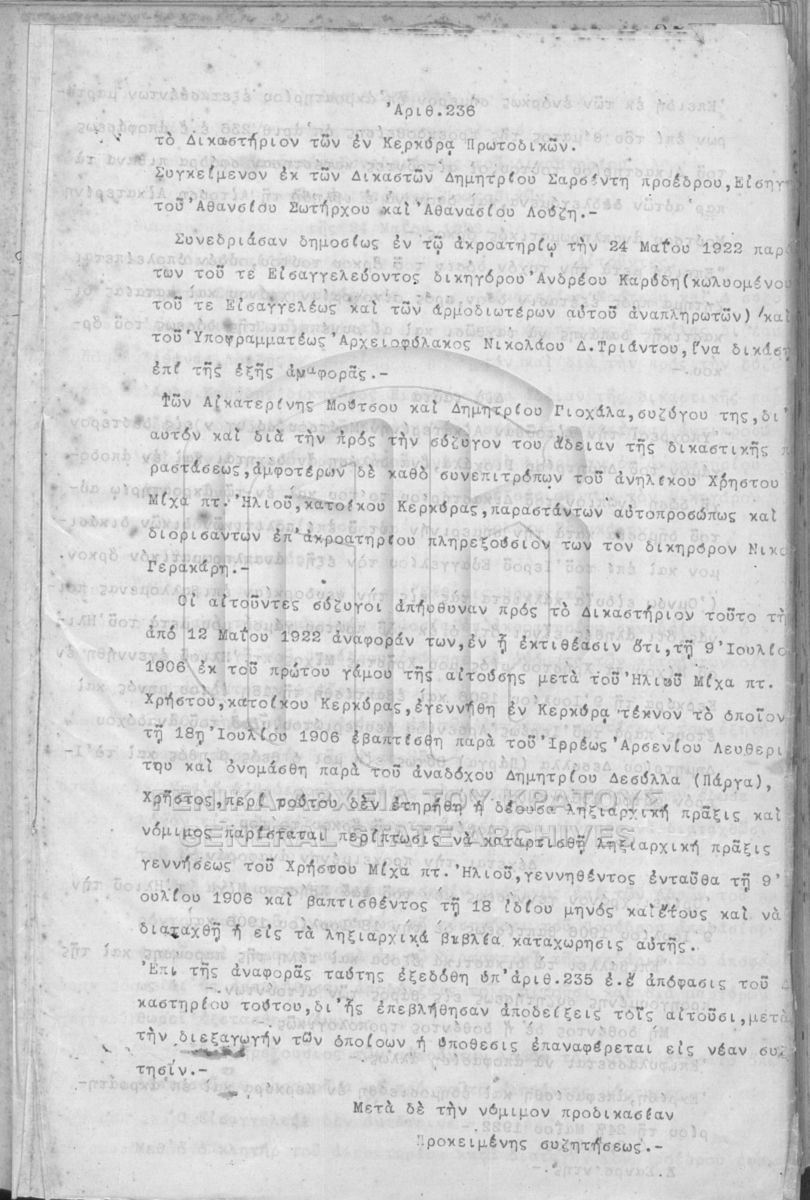 Ἀριθ.236
τὸ Δικαστήριον τῶν ἐν Κερκύρᾳ Πρωτοδικῶν.
Συγκείμενον ἐκ τῶν Δικαστῶν Δημητρίου Σαρσέντη προέδρου,Εἰσηγ
τοῦ Ἀθανσίου Σωτήρχου καὶ Ἀθανασίου Λούζη.-
Συνεδριάσαν δημοσίως ἐν τῷ ἀκροατηρίῳ τὴν 24 Μαΐου 1922 παρ
των τοῦ τε Εἰσαγγελεύοντος δικηγόρου Ἀνδρέου Καρύδη(κωλυομένου
τοῦ τε Εἰσαγγελέως καὶ τῶν ἁρμοδιωτέρων αὐτοῦ ἀναπληρωτῶν)/καὶ
τοῦ Ὑπογραμματέως Ἀρχειοφύλακος Νικολάου Δ.Τριάντου,ἵνα δικάσῃ
ἐπὶ τῆς ἑξῆς ἀναφορᾶς.-
Τῶν Αἰκατερίνης Μούτσου καὶ Δημητρίου Γιοχάλα,συζύγου της,δι'
αὐτόν καὶ διὰ τὴν πρός τὴν σύζυγον του ἄδειαν τῆς δικαστικῆς π
ραστάσεως,ἀμφοτέρων δὲ καθὸ συνεπιτρόπων τοῦ ἀνηλίκου Χρήστου
Μίχα πτ.Ἠλιοῦ,κατοίκου Κερκύρας,παραστάντων αὐτοπροσώπως καὶ
διορισάντων ἐπ'ἀκροατηρίου πληρεξούσιον των τὸν δικηρόρον Νικο
Γερακάρη.-
Οἱ αἰτοῦντες σύζυγοι ἀπηύθυναν πρός τὸ Δικαστήριον τοῦτο τὴ
ἀπό 12 Μαΐου 1922 ἀναφοράν των,ἐν ᾗ ἐκτιθέασιν ὅτι,τῇ 9 Ἰουλίο
1906 ἐκ τοῦ πρώτου γάμου τῆς αἰτούσης μετὰ τοῦ Ἠλιοῦ Μίχα πτ.
Χρήστου,κατοίκου Κερκύρας,ἐγεννήθη ἐν Κερκύρᾳ τέκνον τὸ ὁποῖον
τῇ 18ῃ Ἰουλίου 1906 ἐβαπτίσθη παρὰ τοῦ Ἱρρέως Ἀρσενίου Λευθερι
του καὶ ὀνομάσθη παρὰ τοῦ ἀναδόχου Δημητρίου Δεσύλλα (Πάργα),
Χρῆστος,περί τούτου δὲν ἐτηρήθη ἡ δέουσα ληξιαρχική πρᾶξις καὶ
νόμιμος παρίσταται περίπτωσις νὰ καταρτισθῇ ληξιαρχική πρᾶξις
γεννήσεως τοῦ Χρήστου Μίχα πτ.Ἠλιοῦ,γεννηθέντος ἐνταῦθα τῇ 9
ουλίου 1906 καὶ βαπτισθέντος τῇ 18 ἰδίου μηνός καὶ ἔτους καὶ νὰ
διαταχθῇ ἡ εἰς τὰ ληξιαρχικὰ βιβλία καταχώρησις αὐτῆς.
Ἐπὶ τῆς ἀναφορᾶς ταύτης ἐξεδόθη ὑπ'ἀριθ.235 ἐ.ἔ ἀπόφασις τοῦ Δ
καστηρίου τούτου,δι'ἧς ἐπεβλήθησαν ἀποδείξεις τοῖς αἰτοῦσι,μετὰ
τὴν διεξαγωγήν τῶν ὁποίων ἡ ὑπόθεσις ἐπαναφέρεται εἰς νέαν συζ
τησίν.-
Μετὰ δὲ τὴν νόμιμον προδικασίαν
Προκειμένης συζητήσεως.-
ΓΕΝΙΚΑ ΑΡΧΕΙΑ ΤΟΥ ΚΡΑΤΟΥΣ
GENERAL STATE ARCHIVES